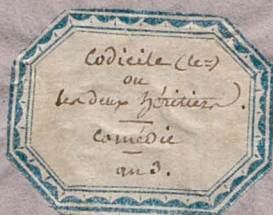 Codicile (le=)
ou
les deux héritiers.
Comédie
an 3.